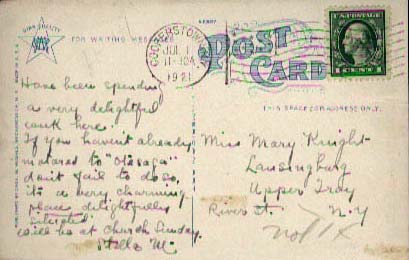 HIGH QUALITY
FOR WRITING MESSAGE
COOPERSTOWN
JUL
11-30A
1921
U.S. POSTAGE
1 CENT 1
POST
CARD
THIS SPACE FOR ADDRESS ONLY.
Have been spending
a very delightful
week here.
If you haven't already
motored to "Otsego"
don't fail to do so,
it's a very charming
place delightfully
situated.
Will be at church Sunday.
Stella M.
Miss Mary Knight
Lansingburg
Upper Troy
River St. N.Y
no